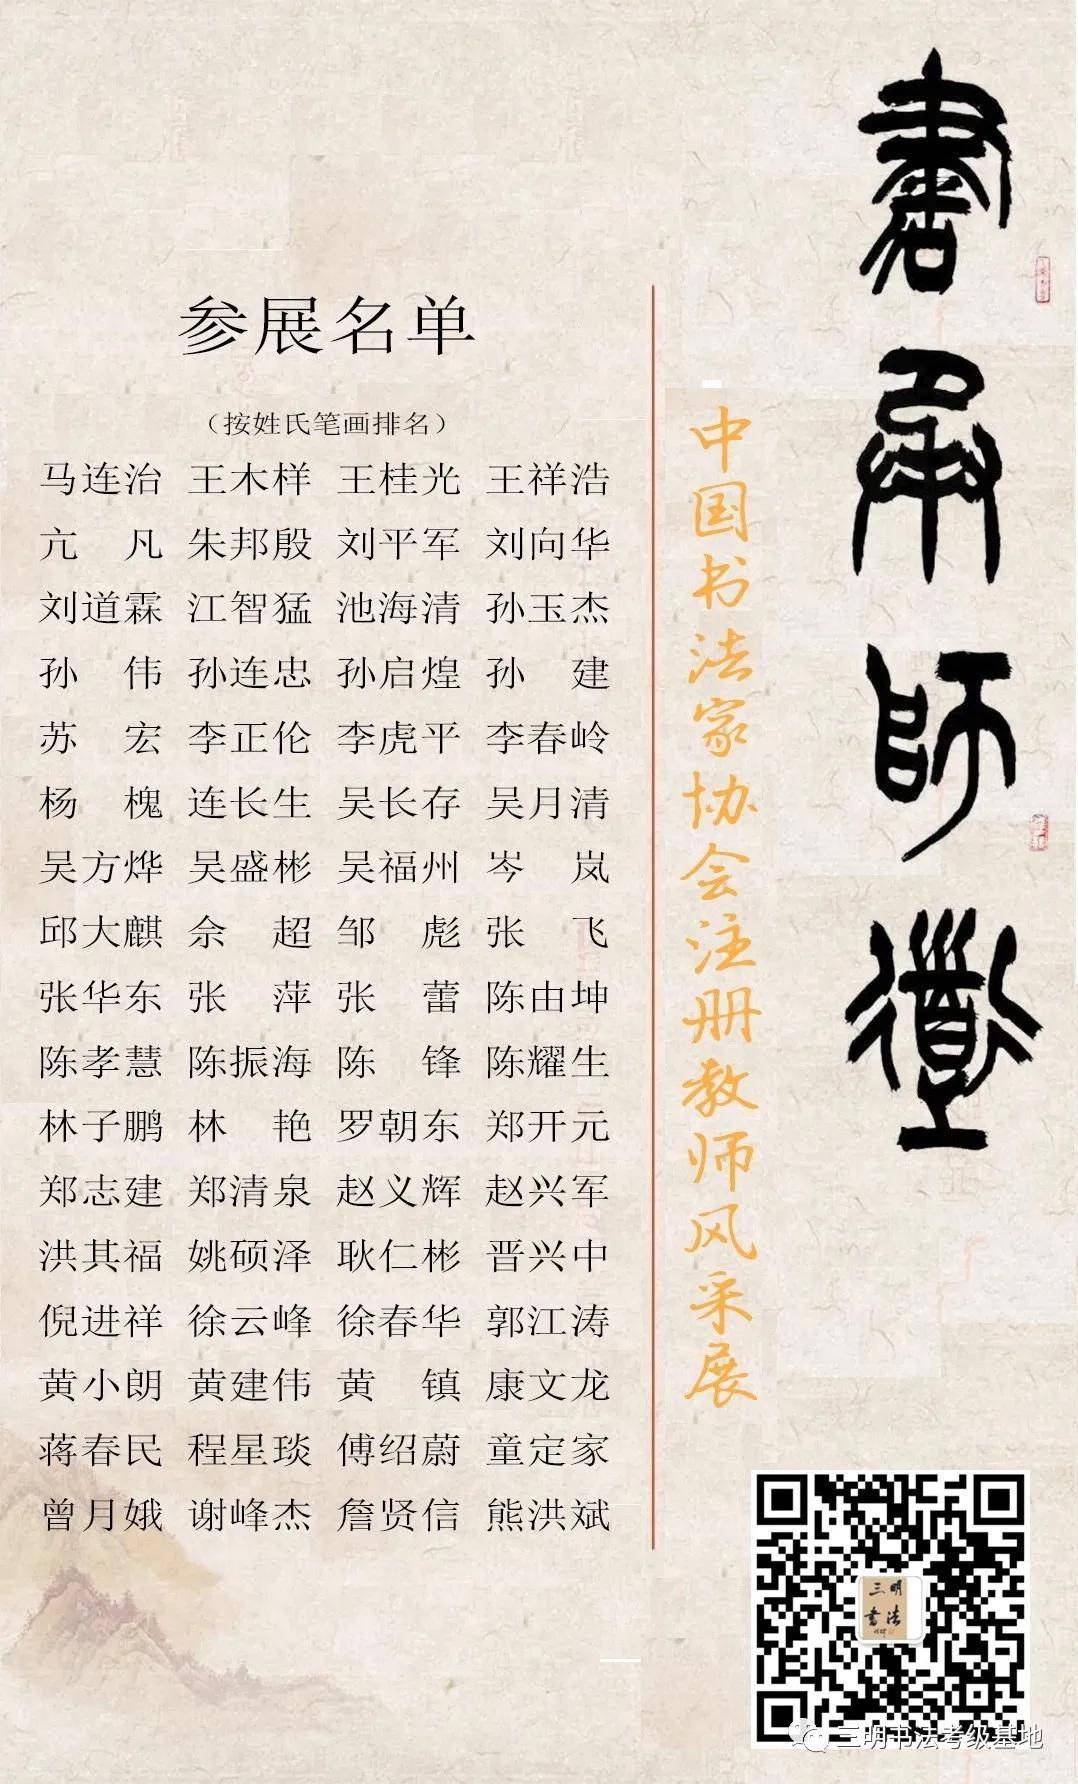 書承师道
中国书法家协会注册教师风采展
参展名单
（按姓氏笔画排名）
马连治 王木样 王桂光 王祥浩
亢 凡 朱邦殷 刘平军 刘向华
刘道霖 江智猛 池海清 孙玉杰
孙 伟 孙连忠 孙启煌 孙 建
苏 宏 李正伦 李虎平 李春岭
杨 槐 连长生 吴长存 吴月清
吴方烨 吴盛彬 吴福州 岑 岚
邱大麒 余 超 邹 彪 张 飞
张华东 张 萍 张 蕾 陈由坤
陈孝慧 陈振海 陈 锋 陈耀生
林子鹏 林 艳 罗朝东 郑开元
郑志建 郑清泉 赵义辉 赵兴军
洪其福 姚硕泽 耿仁彬 晋兴中
倪进祥 徐云峰 徐春华 郭江涛
黄小朗 黄建伟 黄 镇 康文龙
蒋春民 程星琰 傅绍蔚 童定家
曾月娥 谢峰杰 詹贤信 熊洪斌
三明
書法
三明书法考级基地